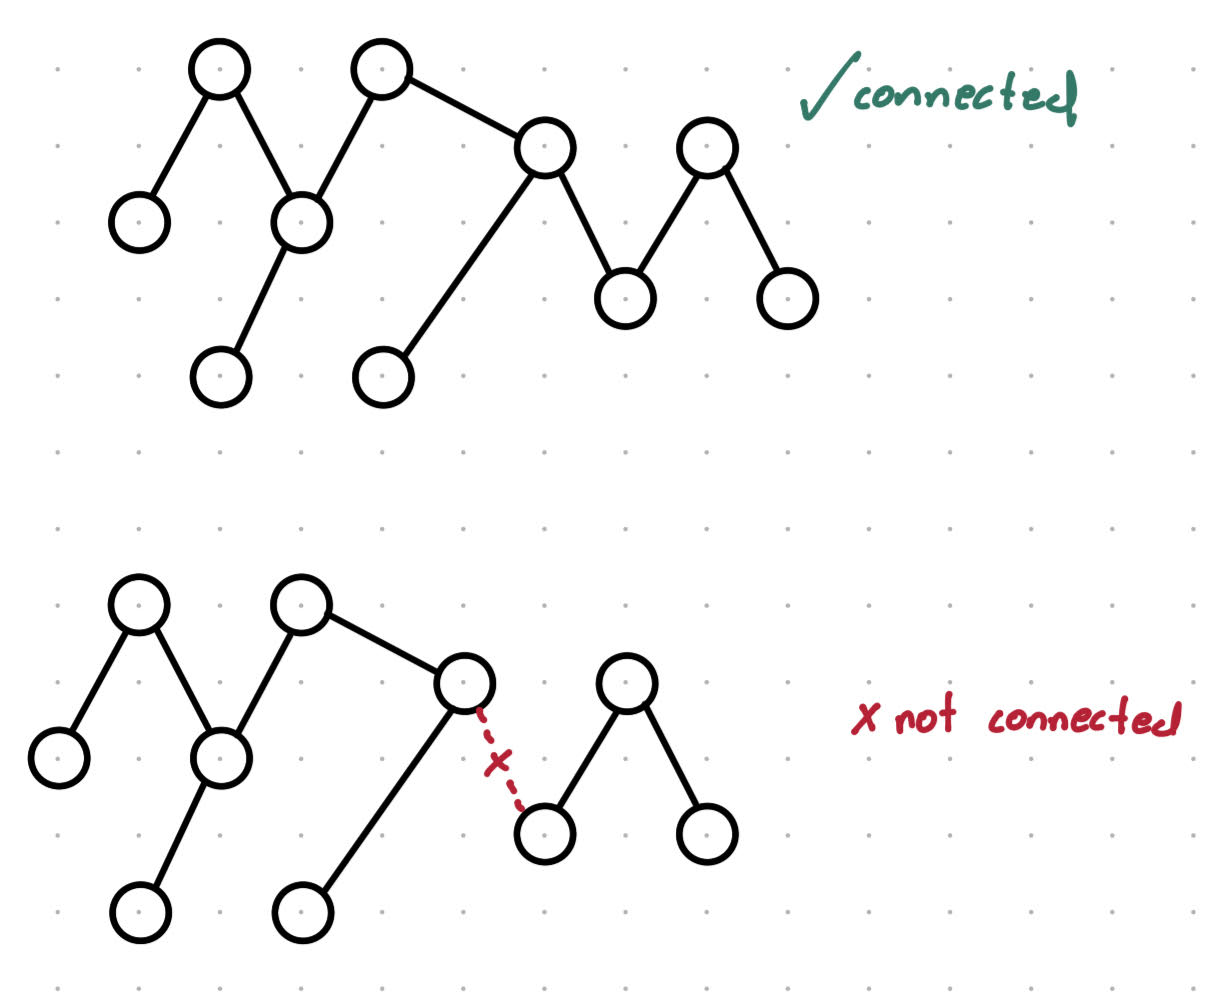 ✓ connected
x not connected